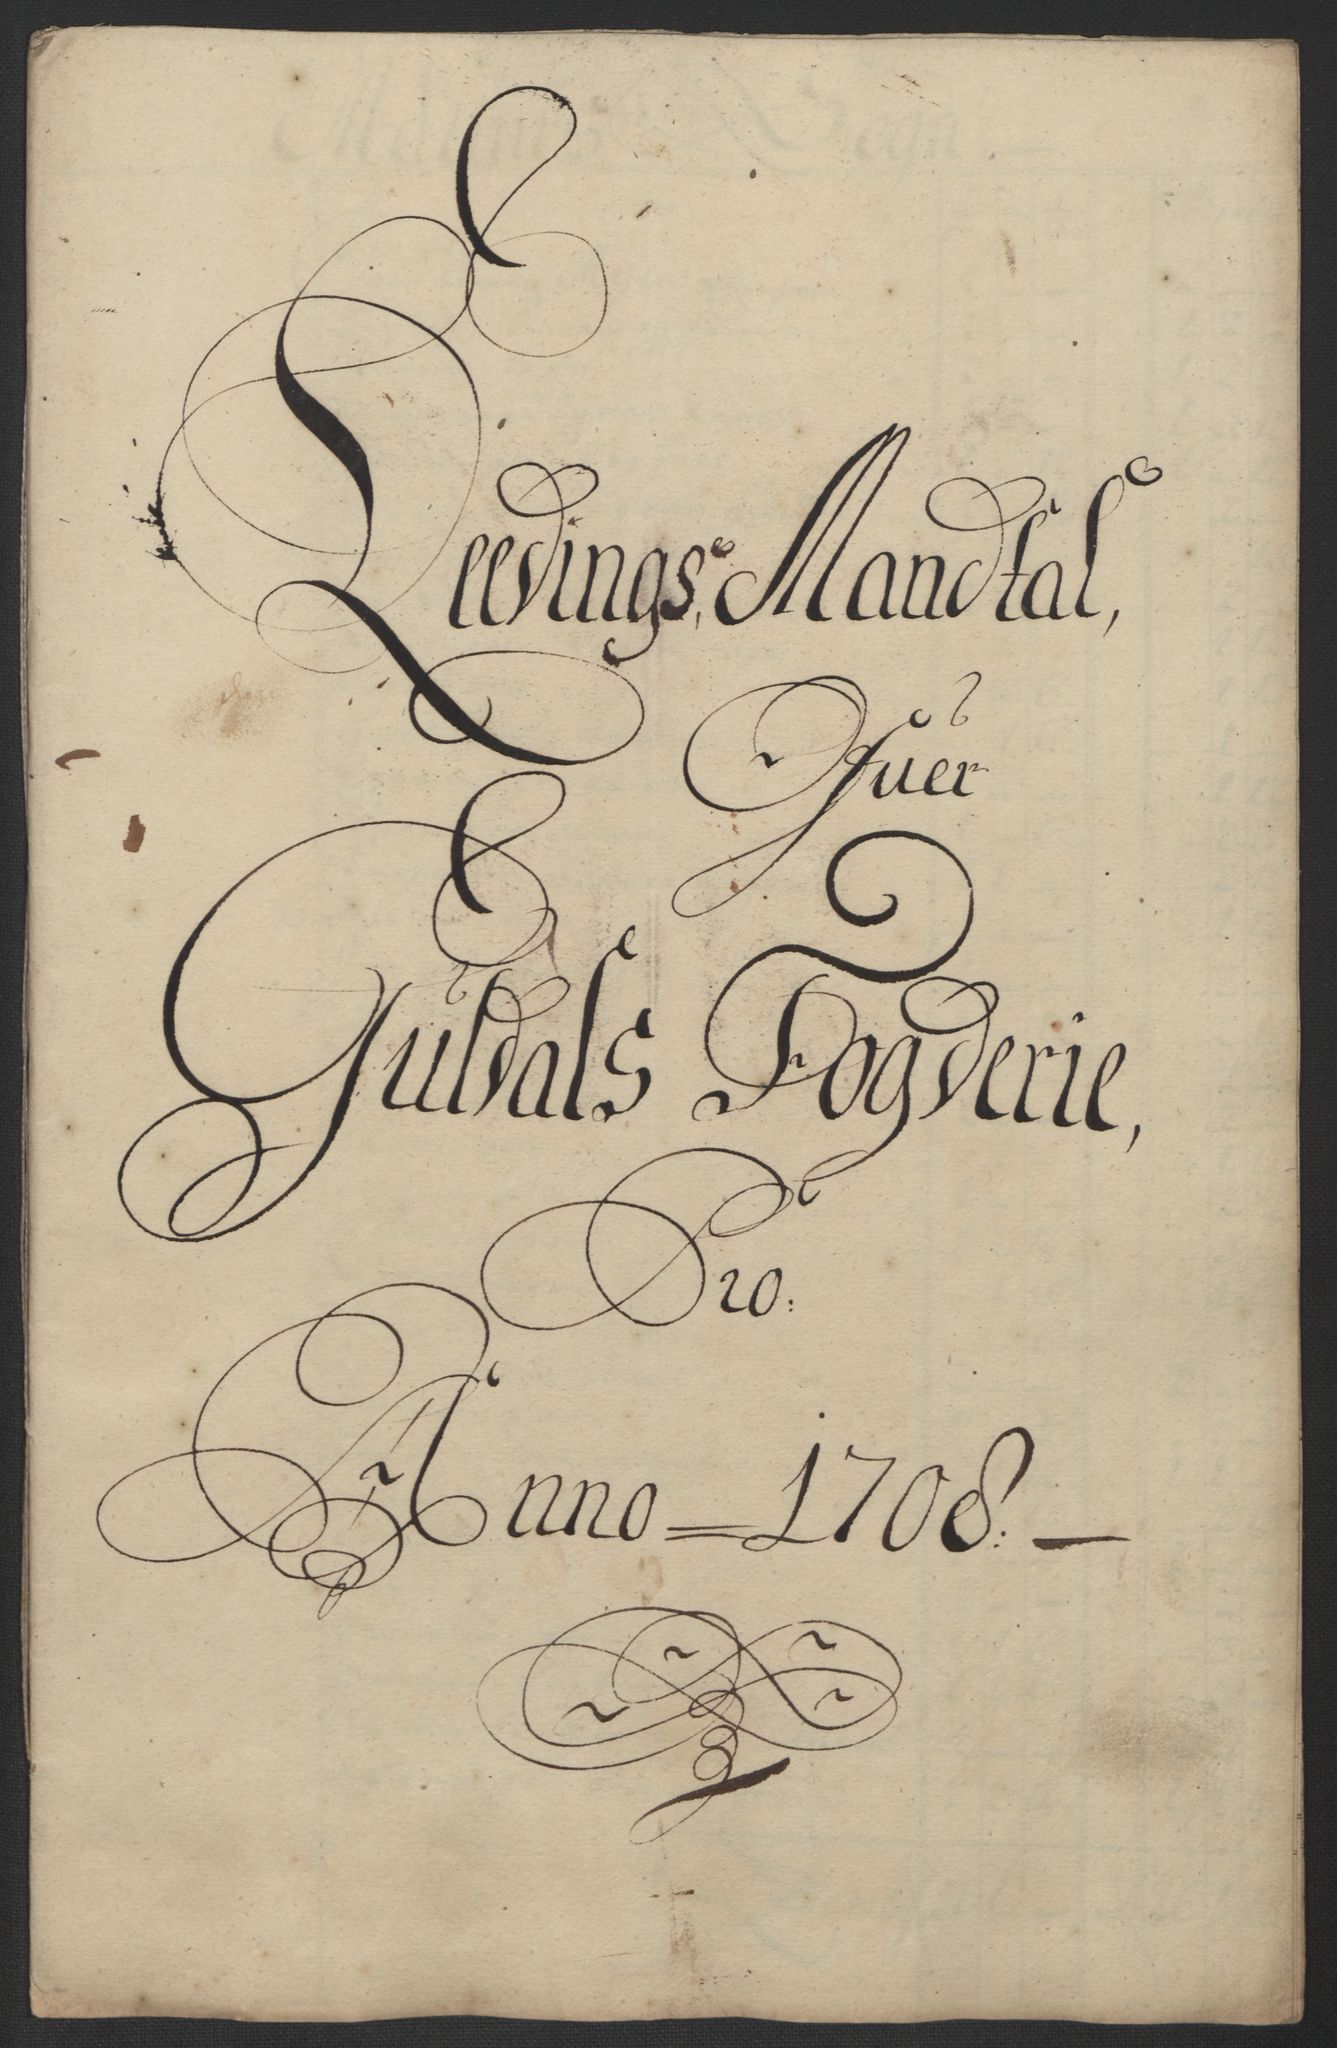 Leedings, Mandtal,
Ofuer
Guldals Fogderie,
Pro:
Anno = 1708. —